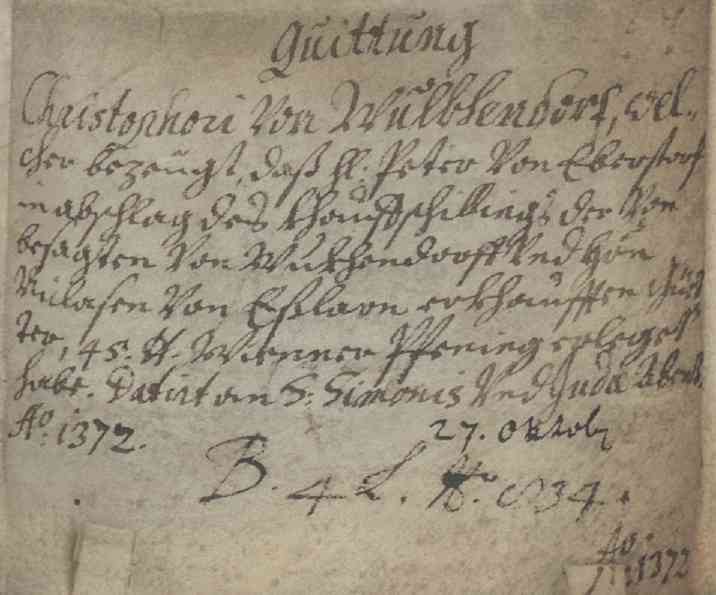 Quittung
Christophori Von Wulkhendorf, wel-
cher bezeügt, daß H: Peter Von Eberstorf
in abschlag des khauffschillings der Von
besagten Von Wulkhendorff Vnd
Niclasen Von Eslarn erkhaufften Güet
ter, 45. ℔. Wienner Pfening erleget
habe. Datirt am S: Simonis Vnd Juda Abent.
Aõ. 1372.
27. Octob
B. 4 L. N.o 834.
Aõ. 1372